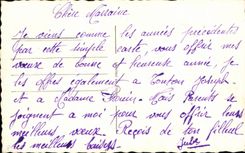 Chère Marraine
Je viens comme les années précédentes
par cette simple carte, vous offrir mes
vœux de bonne et heureuse année, je
les offres également a Tonton Joseph
et a Madame Mes Parents se
joignent a moi pour vous offrir leurs
meilleurs vœux. Reçois de ton filleul
les meilleurs baisers.